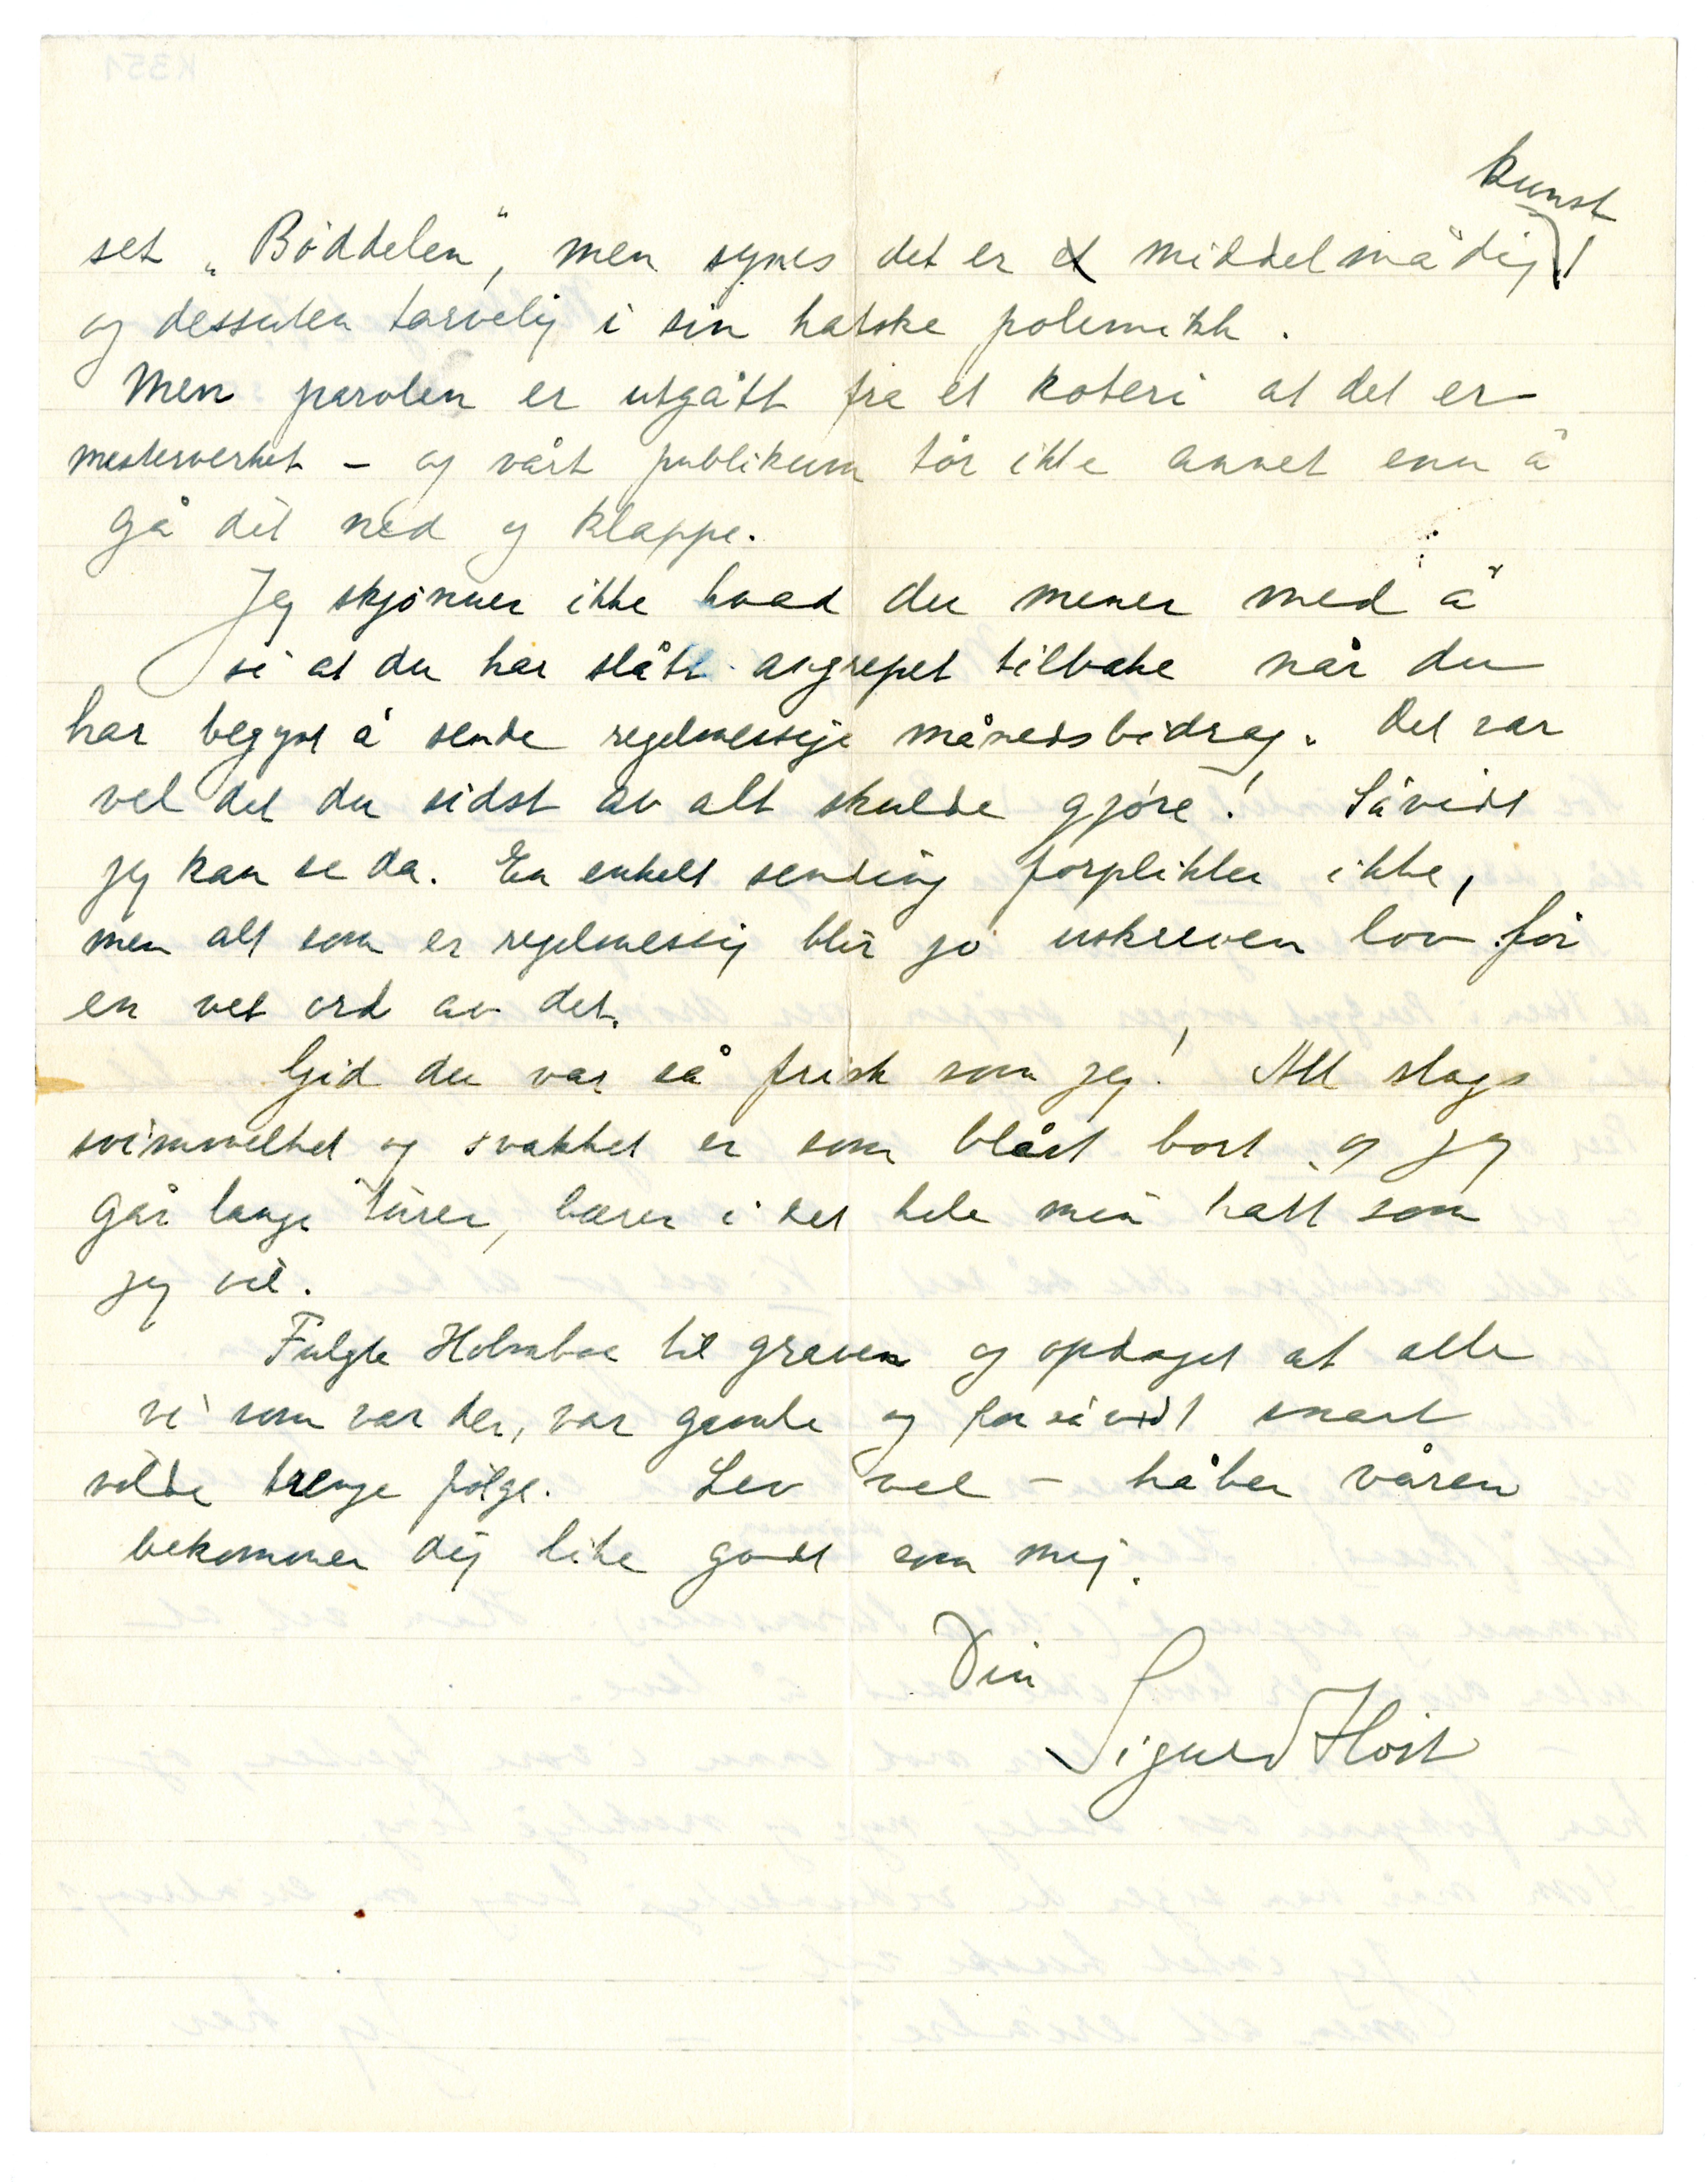 kunst
set „Bøddelen”, men synes det er et middelmådig!
og dessuten tarvelig i sin hatske polemikk.
Men parolen er utgått fra et koteri at det er
mesterverket – og vårt publikum tør ikke annet enn å
gå dit ned og klappe.
Jeg skjønner ikke hvad du mener med å
si at du har slått angrepet tilbake når du
har begynt å sende regelmessige månedsbidrag. Det var
vel det du sidst av alt skulde gjøre! Såvidt
jeg kan se da. En enkelt sending forplikter ikke,
men alt som er regelmessig blir jo uskreven lov før
en vet ord av det.
Gid du var så frisk som jeg! All slags
svimmelhet og svakhet er som blåst bort og jeg
går lange turer, bærer i det hele min hatt som
jeg vil.
Fulgte Holmboe til graven og opdaget at alle
vi som var der, var gamle og forsåvidt snart
vilde trenge følge. Lev vel – håber våren
bekommer dig like godt som mig.
Din
Sigurd Høst